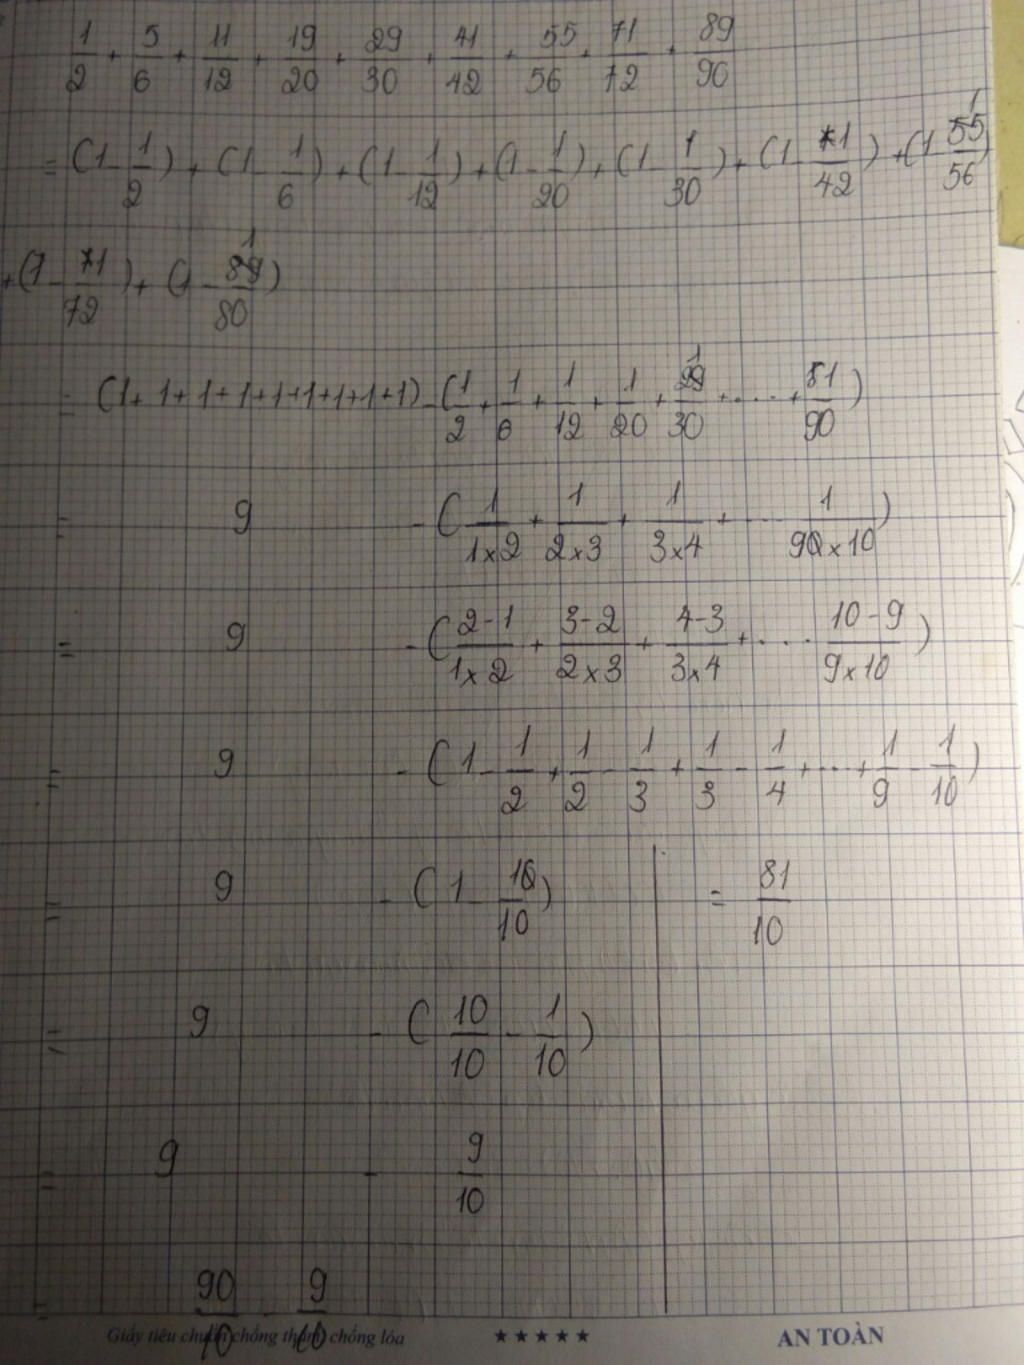 1/2 + 5/6 + 11/12 + 19/20 + 29/30 + 41/42 + 55/56 + 71/72 + 89/90
= (1 - 1/2) + (1 - 1/6) + (1 - 1/12) + (1 - 1/20) + (1 - 1/30) + (1 - 1/42) + (1 - 1/56)
+ (1 - 1/72) + (1 - 1/80)
= (1 + 1 + 1 + 1 + 1 + 1 + 1 + 1 + 1) - (1/2 + 1/6 + 1/12 + 1/20 + 1/30 + .... + 1/90)
= 9 - (1/1x2 + 1/2x3 + 1/3x4 + ... 1/9x10)
= 9 - (2-1/1x2 + 3-2/2x3 + 4-3/3x4 + .... 10-9/9x10)
= 9 - (1 - 1/2 + 1/2 - 1/3 + 1/3 - 1/4 + ... + 1/9 - 1/10)
= 9 - (1 - 1/10) = 81/10
= 9 - (10/10 - 1/10)
= 9 - 9/10
= 90/10 - 9/10
Giấy tiêu chuẩn chống thấm chống lóa ★★★★★ AN TOÀN